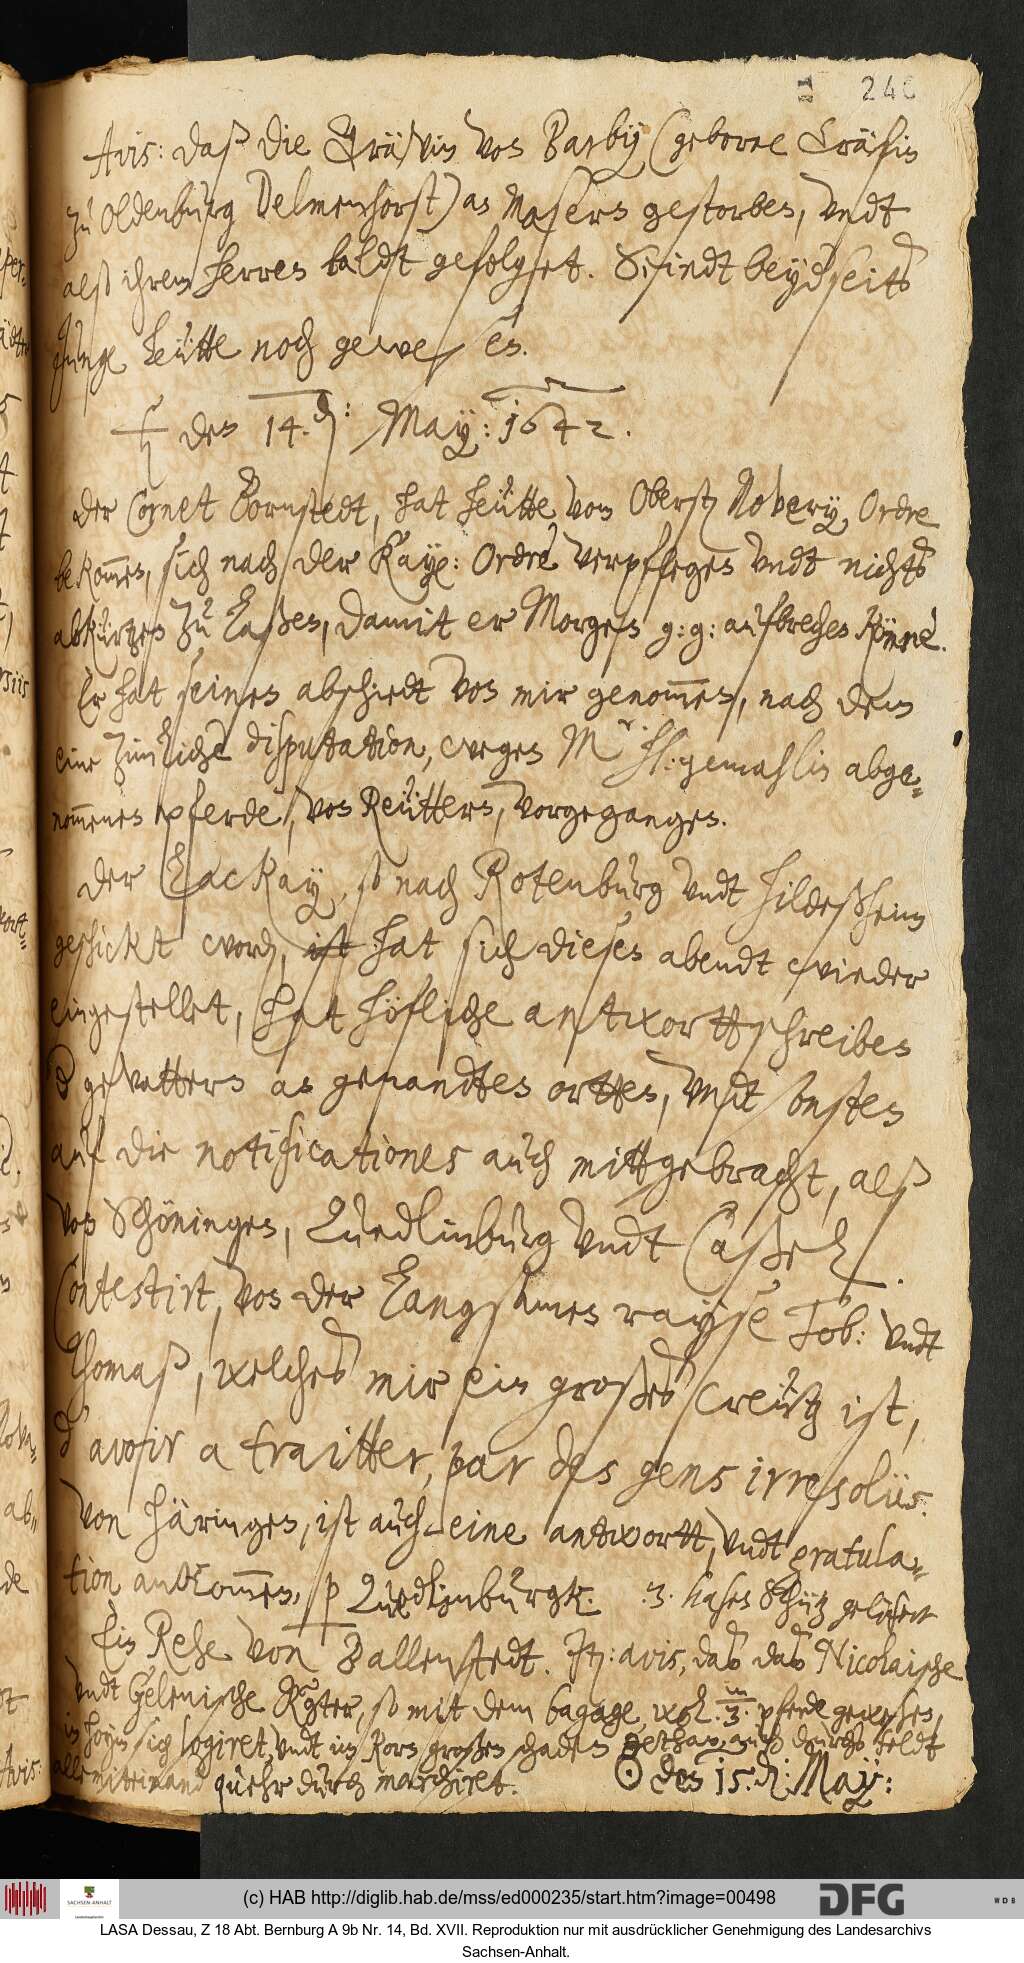 240
Avis: daß die Gräfvin von Barby (geborne Gräfin
zu Oldenburg Delmenhorst) an Masern gestorben, vndt
alß ihrem herren baldt gefolget. Seindt beydseits
junge leütte noch gewesen.
♄ den 14. d: May: 1642.
Der Cornet Bornstedt, hat heütte vom Oberst Rovery Ordre
bekom̅en, sich nach der Kay: Ordre verpflegen vndt nichts
abkürtzen zu laßen, damit er Morgen g: g: aufbrechen könne.
Er hat seinen abschiedt von mir genom̅en, nach dem
eine zimliche disputation, wegen Mr h: gemahlin abge-
nom̅enen pferde, von Reüttern, vorgegangen.
Der Lackay, so nach Rotenburg vndt hildeßheim
geschickt word, ist hat sich diesen abendt wieder
eingestellet, hat höfliche antwortt schreiben
gevattern an genandten ortten, vndt
auf die notificationes auch mittgebracht, alß
von Schöningen, Quedlinburg vndt Caßel.
Contestirt, von der langsamen rayse Tob: vndt
Thomaß, welches mir ein großes creütz ist,
d'avoir a traitter, par des gens irresolüs.
Von häringen, ist auch eine antwortt, vndt gratula-
tion ankom̅en, p Quedlinburgk. 3. hasen Schütz geliefert
Ein Rehe von Ballenstedt. It: avis, das das Nicolaische
vndt Gelenische Rgter, so mit dem bagage, wol. 3. pferde gewesen,
in hoym sich logiret, vndt im Korn großen schaden gethan, auch durchs feldt
alle miteinand quehr durch marchiret. ☉ den 15. d: May:
Avis:
(c) HAB http://diglib.hab.de/mss/ed000235/start.htm?image=00498
SACHSEN-ANHALT
DFG
WDB
LASA Dessau, Z 18 Abt. Bernburg A 9b Nr. 14, Bd. XVII. Reproduktion nur mit ausdrücklicher Genehmigung des Landesarchivs
Sachsen-Anhalt.